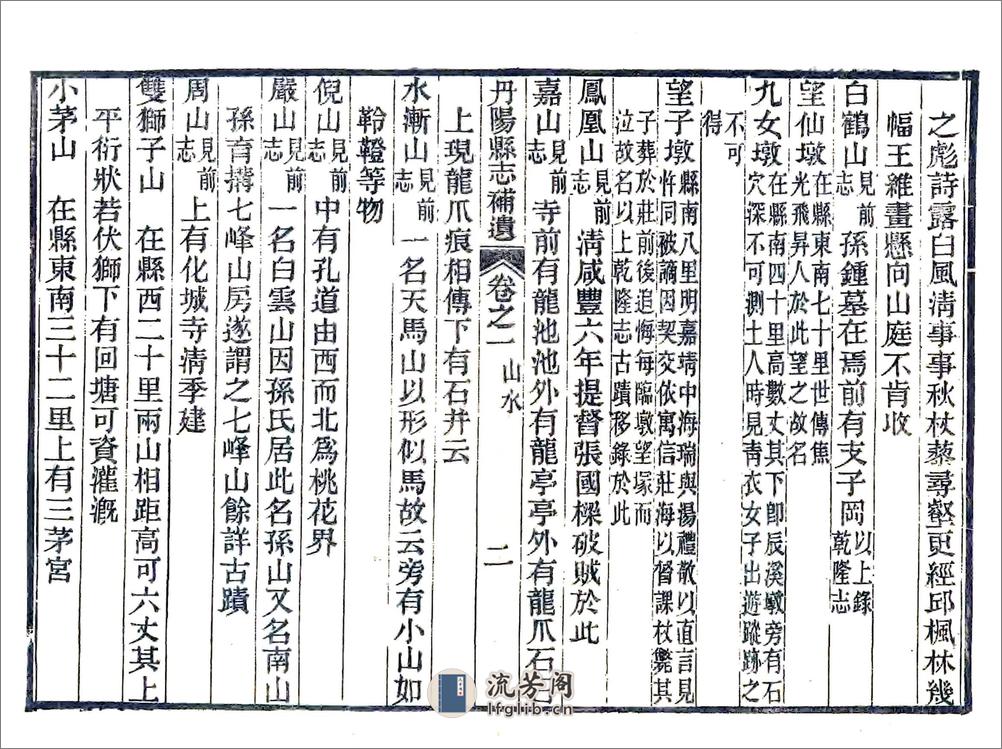 之彪詩露白風淸事事秋杖藜尋壑更經邱楓林幾
幅王維畫懸向山庭不肯收
白鶴山見前志 孫鍾墓在焉前有支子岡以上錄乾隆志
望仙墩在縣東南七十里世傳焦光飛昇人於此望之故名
九女墩在縣南四十里高數丈其下卽辰溪墩旁有石穴深不可測土人時見靑衣女子出遊蹤跡之
不可得
望子墩縣南八里明嘉靖中海瑞與湯禮敬以直言見忤同被謫因契交依寓信莊海以督課杖斃其
子葬於莊前後追悔每臨墩望塚而泣故名以上乾隆志古蹟移錄於此
鳳凰山見前志 淸咸豐六年提督張國樑破賊於此
嘉山見前志 寺前有龍池池外有龍亭亭外有龍爪石石
丹陽縣志補遺 卷之一 山水 二
上現龍爪痕相傳下有石井云
水漸山見前志 一名天馬山以形似馬故云旁有小山如
鈴鐙等物
倪山見前志 中有孔道由西而北爲桃花界
嚴山見前志 一名白雲山因孫氏居此名孫山又名南山
孫育搆七峰山房遂謂之七峰山餘詳古蹟
周山見前志 上有化城寺淸季建
雙獅子山 在縣西二十里兩山相距高可六丈其上
平衍狀若伏獅下有回塘可資灌漑
小茅山 在縣東南三十二里上有三茅宮
流芳阁
lfglib.cn